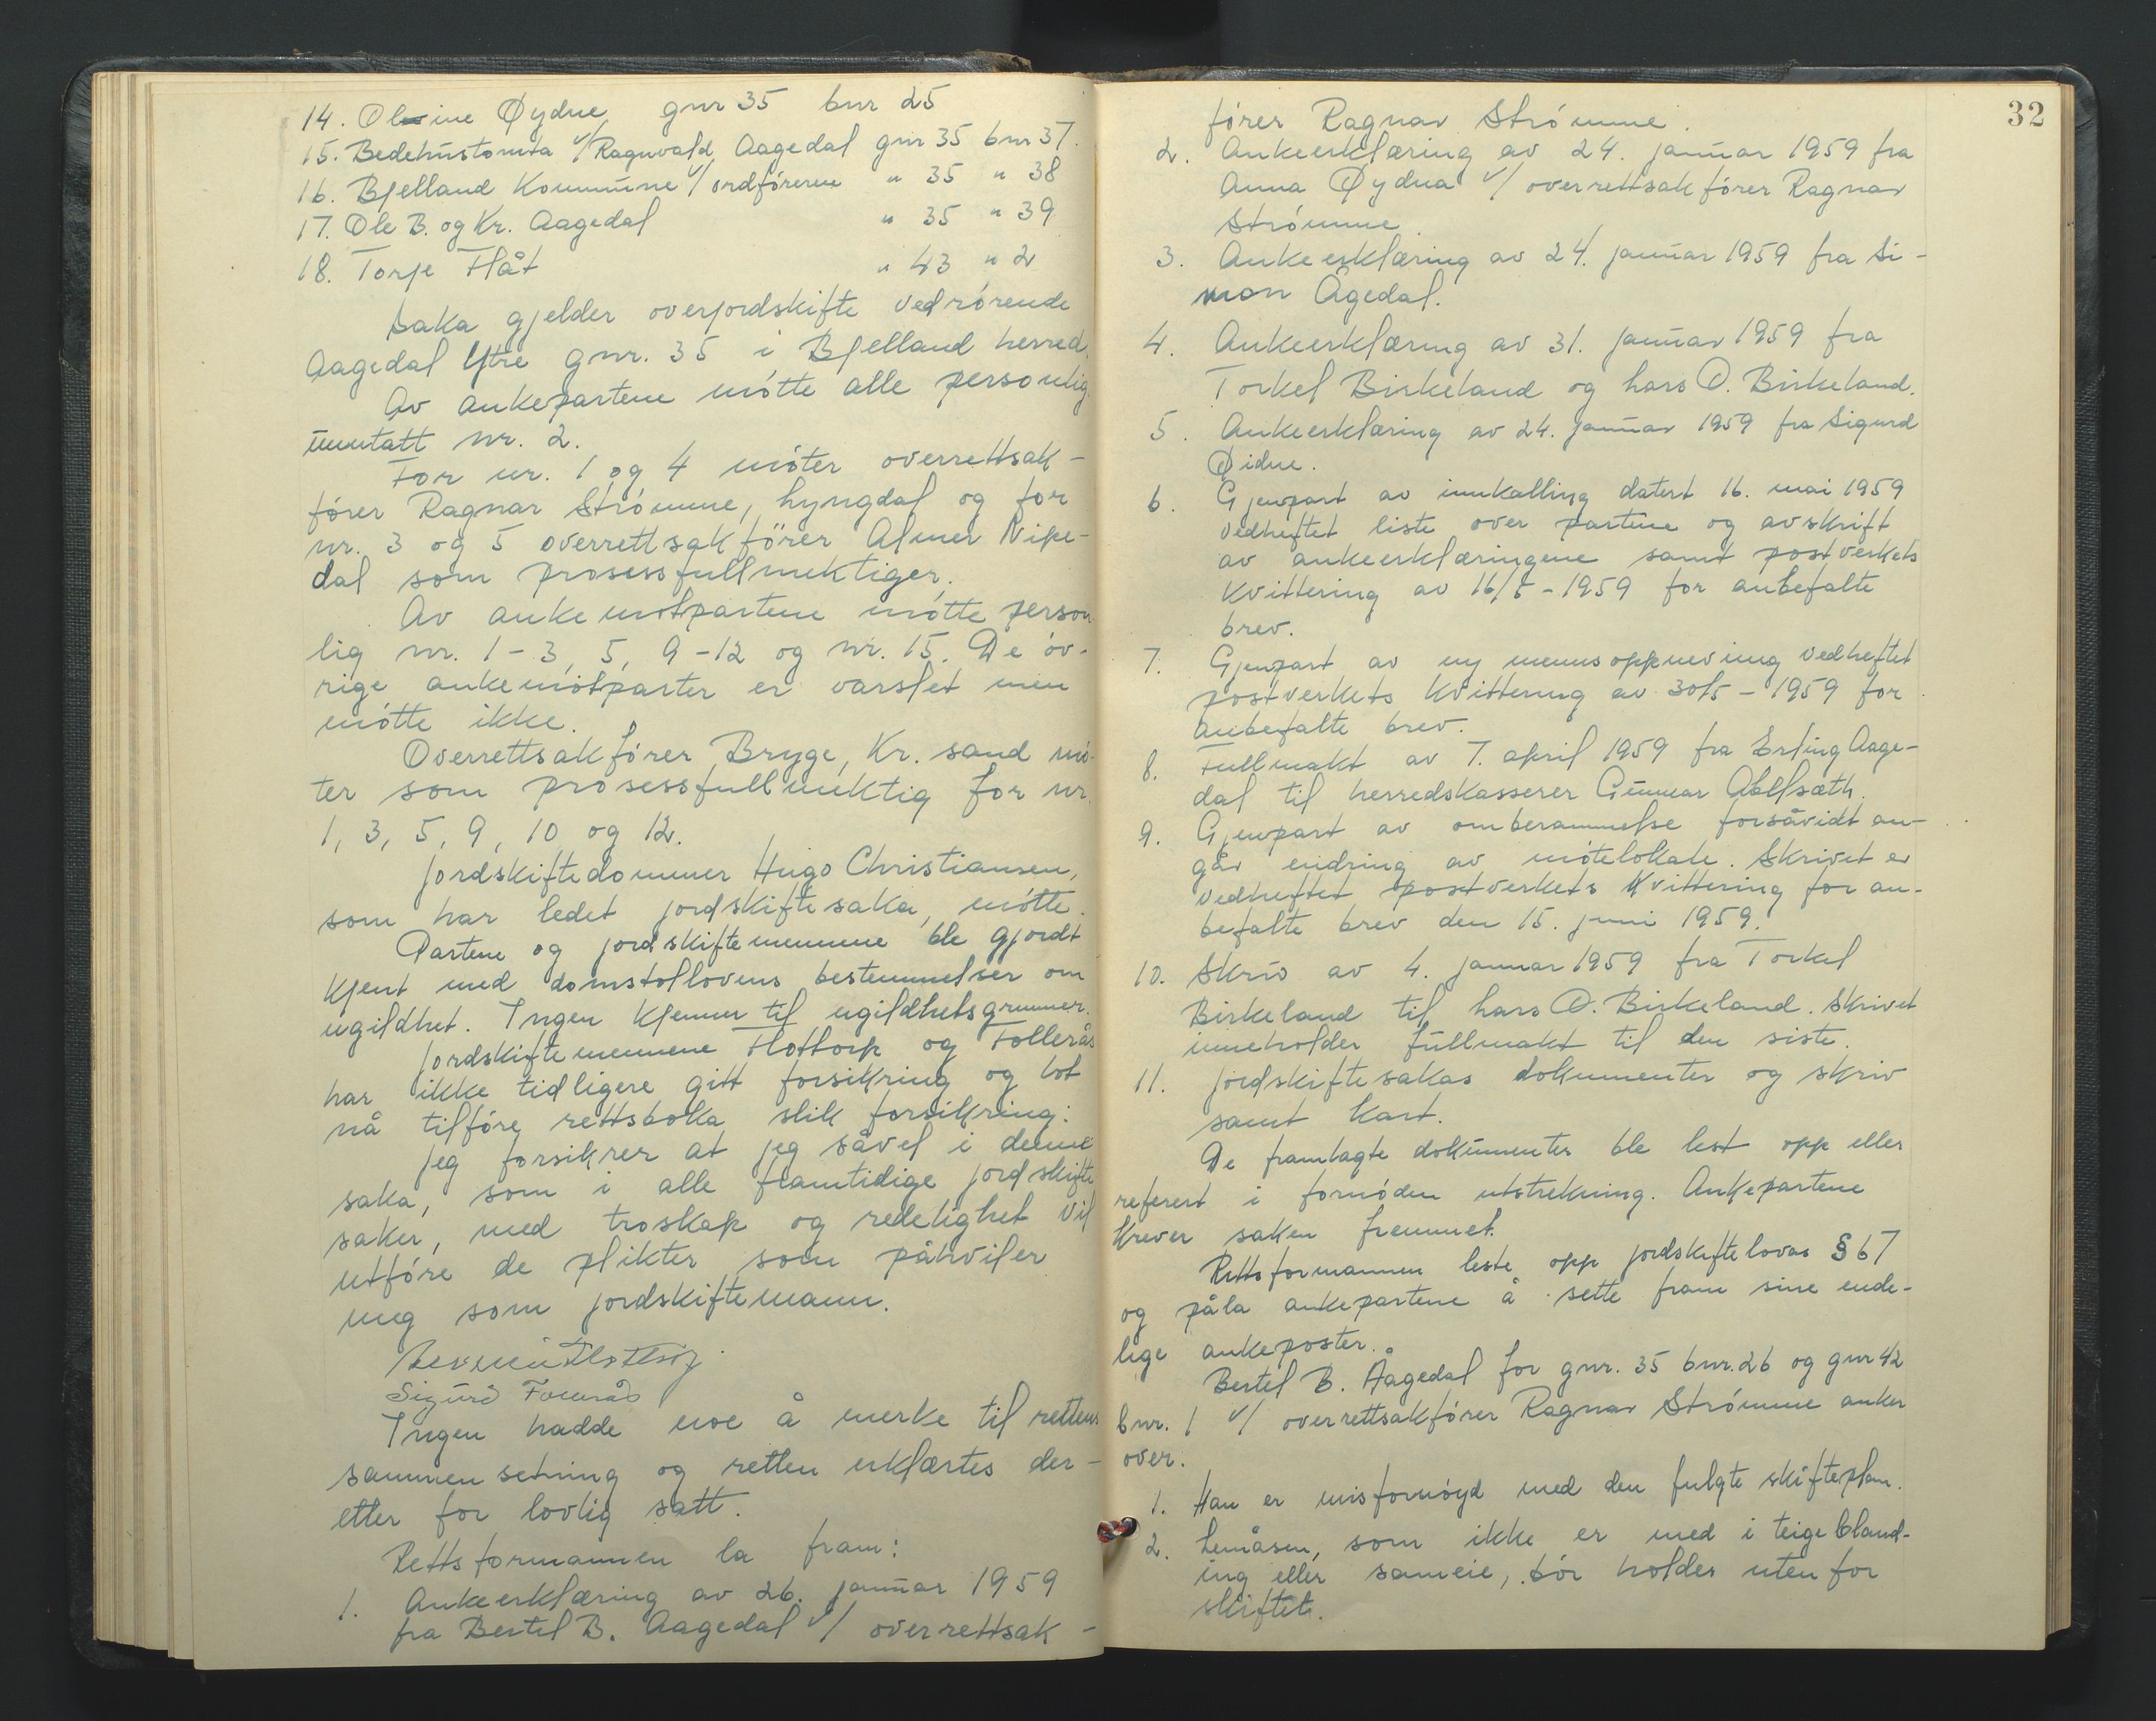 14. Oleine Øydne gnr 35 bnr 25
15. Bedehustomta v/Ragnvald Aagedal gnr 35 bnr 37.
16. Bjelland Kommune v/ordføreren " 35 " 38
17. Ole B. og Kr. Aagedal " 35 " 39
18. Torje Flåt " 43 " 2
Saka gjelder overjordskifte vedrørende
Aagedal Ytre gnr. 35 i Bjelland herred.
Av ankepartene møtte alle personlig
unntatt nr. 2.
For nr. 1 og 4 møter overrettsak-
fører Ragnar Strømme, Lyngdal og for
nr. 3 og 5 overrettsakfører Almer Nipe-
dal som prosessfullmektiger.
Av ankemotpartene møtte person
lig nr. 1-3, 5, 9-12 og nr. 15. De øv-
rige ankemotparter er varslet men
møtte ikke.
Overrettsakfører Bryge, Kr. sand mø-
ter som prosessfullmektig for nr.
1, 3, 5, 9, 10 og 12.
Jordskiftedommer Hugo Christiansen,
som har ledet jordskiftesaka, møtte.
Partene og jordskiftemennene ble gjordt
kjent med domstollovens bestemmelser om
ugildhet. Ingen kjenner til ugildhetsgrunner.
Jordskiftemennene Flottorp og Follerås
har ikke tidligere gitt forsikring og lot
nå tilføre rettsboka slik forsikring:
Jeg forsikrer at jeg såvel i denne
saka, som i alle framtidige jordskifte
saker, med troskap og redelighet vil
utføre de plikter som påhviler
meg som jordskiftemann.
Sigurd Follerås
Ingen hadde noe å merke til rettens
sammensetning og retten erklærtes der-
etter for lovlig satt.
Rettsformannen la fram:
1. Ankeerklæring av 26. januar 1959
fra Bertel B. Aagedal v/ overrettsak-
32
fører Ragnar Strømme.
2. Ankeerklæring av 24. januar 1959 fra
Anna Øydna v/ overrettsakfører Ragnar
Strømme.
3. Ankeerklæring av 24. januar 1959 fra Si-
mon Ågedal.
4. Ankeerklæring av 31. januar 1959 fra
Torkel Birkeland og Lars O. Birkeland.
5. Ankeerklæring av 24. januar 1959 fra Sigurd
Øidne.
6. Gjenpart av innkalling datert 16. mai 1959
vedheftet liste over partene og avskrift
av ankeerklæringene samt postverkets
kvittering av 16/5-1959 for anbefalte
brev.
7. Gjenpart av ny mennsoppnevning vedheftet
postverkets kvittering av 30/5-1959 for
anbefalte brev.
8. Fullmakt av 7. april 1959 fra Erling Aage-
dal til herredskasserer Gunnar Abelsæth.
9. Gjenpart av omberammelse forsåvidt an-
går endring av møtelokale. Skrivet er
vedheftet postverkets kvittering for an-
befalte brev den 15. juni 1959.
10. Skriv av 4. januar 1959 fra Torkel
Birkeland til Lars O. Birkeland. Skrivet
inneholder fullmakt til den siste.
11. Jordskiftesakas dokumenter og skriv
samt kart.
De framlagte dokumenter ble lest opp eller
referert i fornøden utstrekning. Ankepartene
krever saken fremmet.
Rettsformannen leste opp jordskiftelovas § 67
og påla ankepartene å sette fram sine ende-
lige ankeposter.
Bertel B. Ågedal for gnr. 35 bnr. 26 og gnr 42
bnr. 1 v/ overrettsakfører Ragnar Strømme anker
over.
1. Han er misfornøyd med den fulgte skifteplan.
2. Lemåsen, som ikke er med i teigebland-
ing eller sameie, bør holdes utenfor
skiftet.